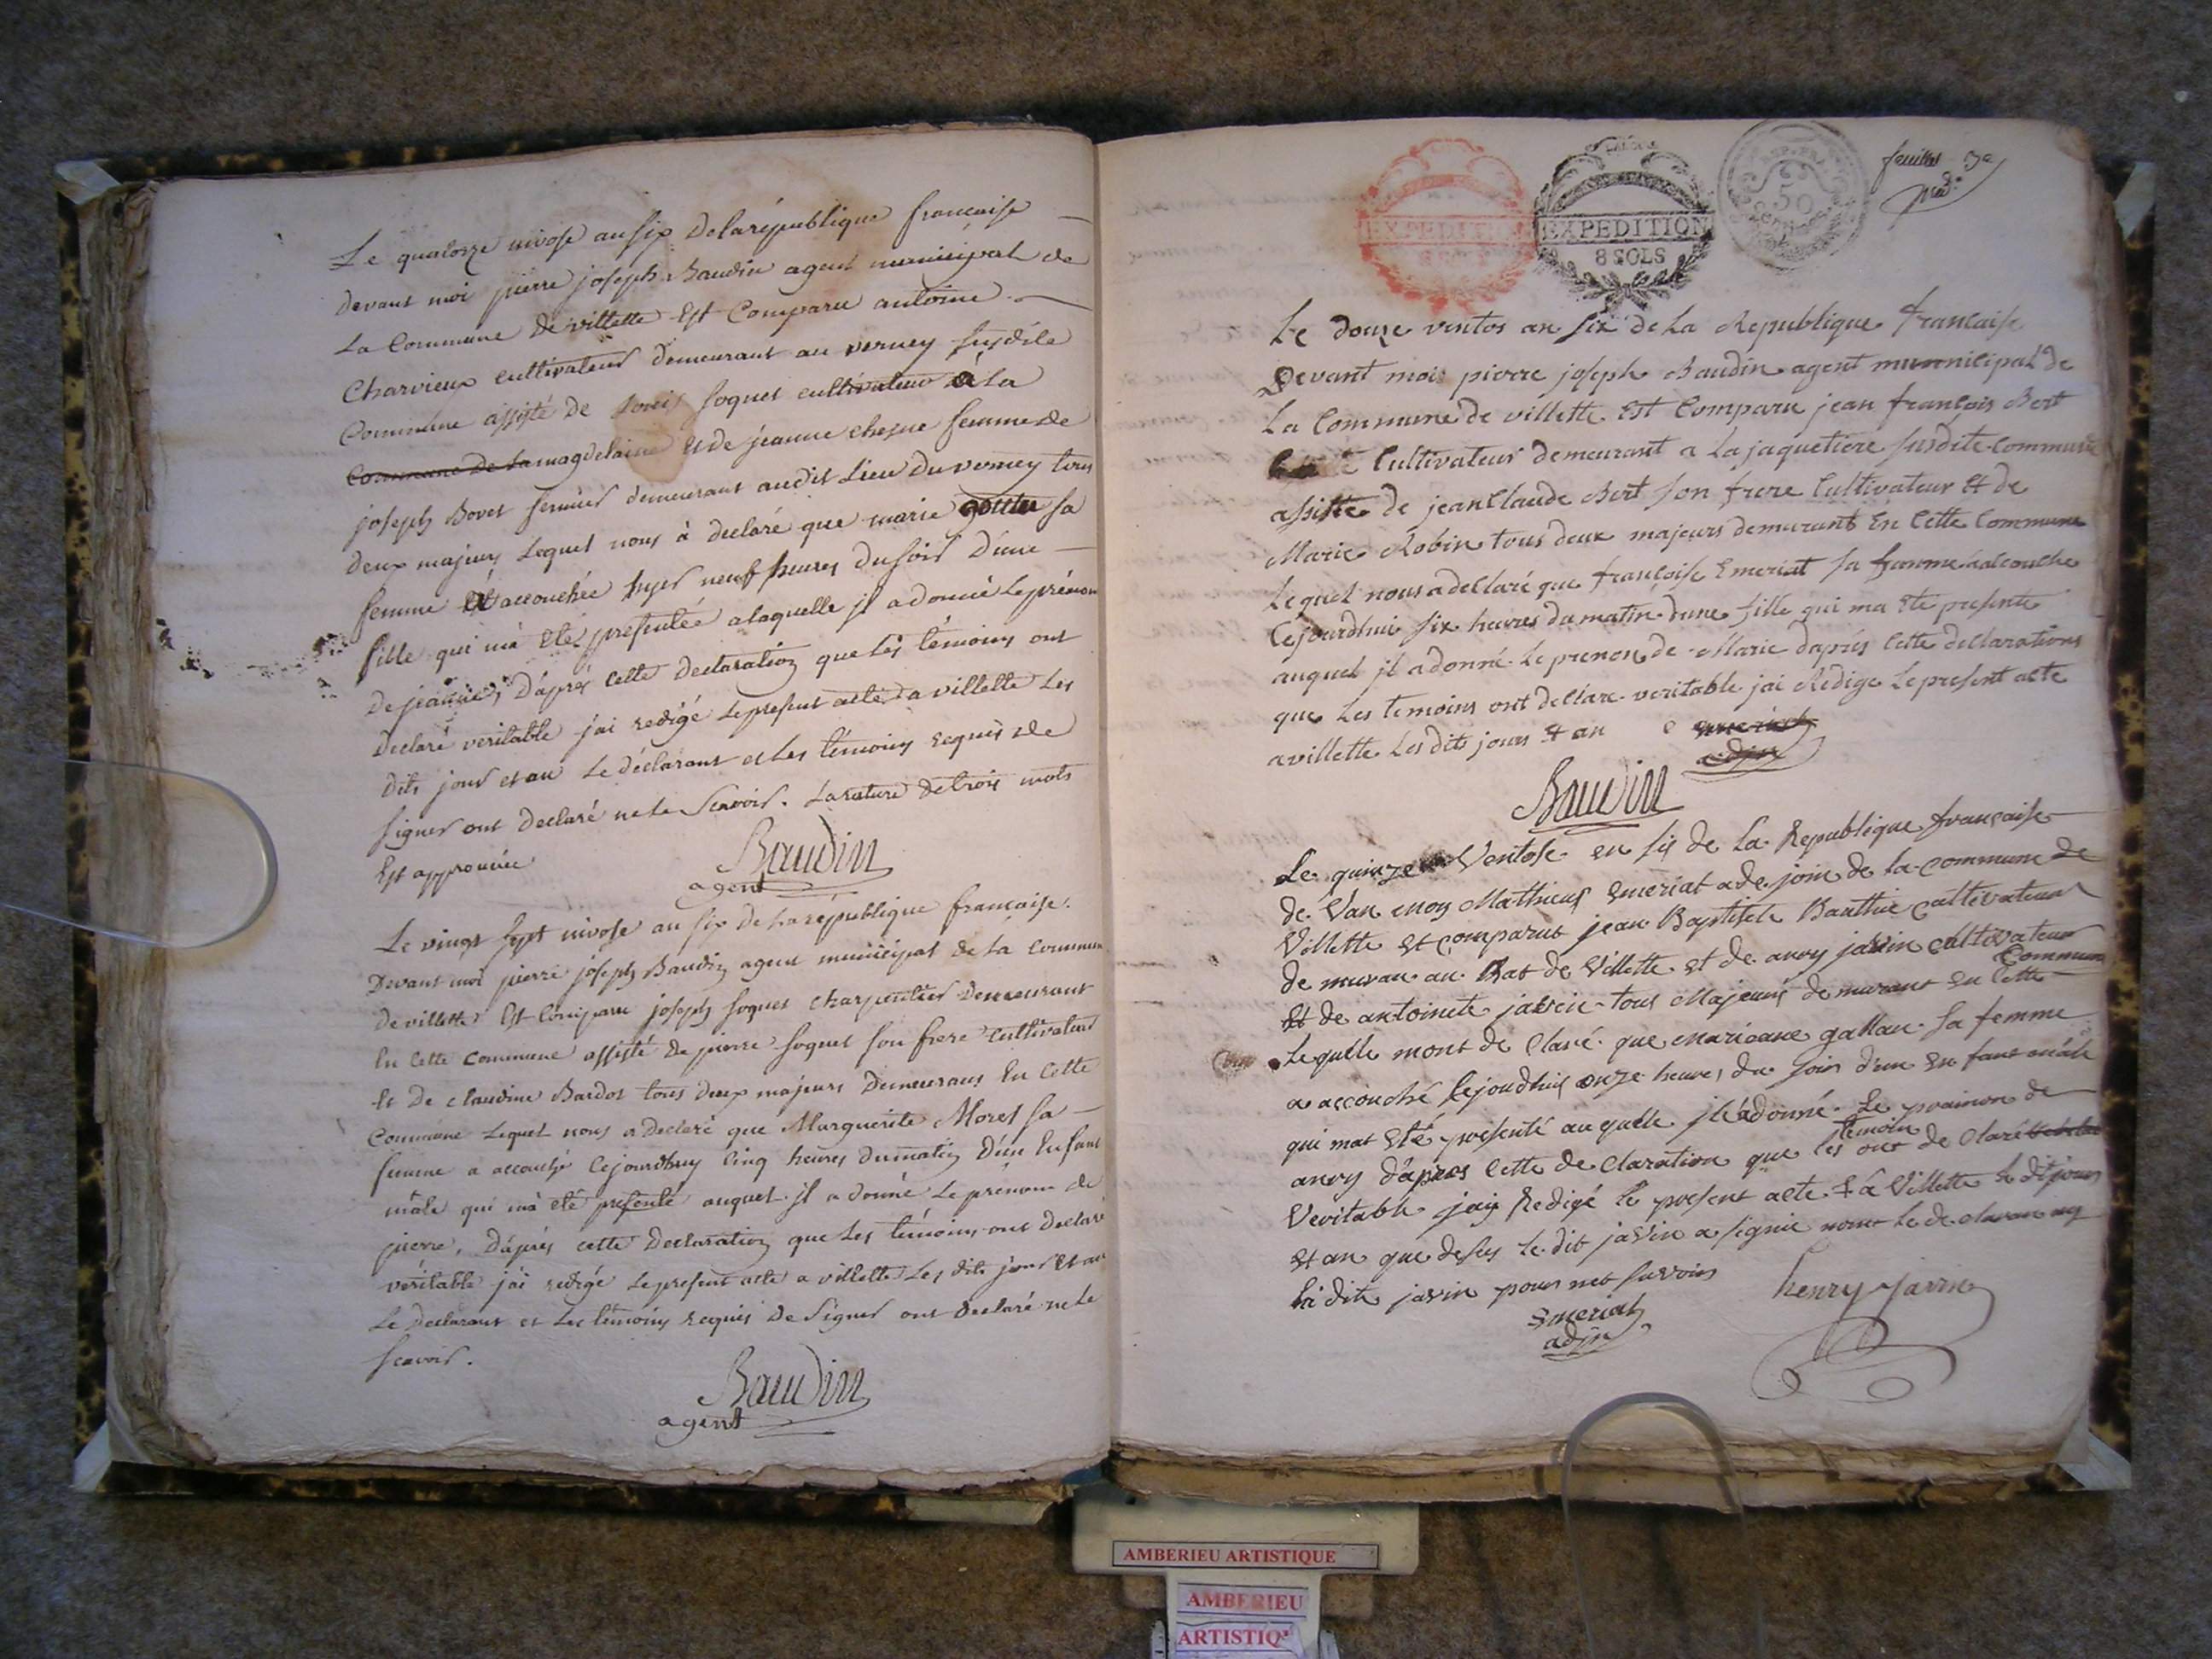 Le quatorze nivose an six de la république francaise
devant moi pierre joseph Baudin agent municipal de
La Commune de villette Est Comparu antoine
Charvieux cultivateur demeurant au verney susdite
Commune assisté de foquet cultivateur à la
commune de la magdelaine et de jeanne chesne femme de
joseph Bovet fermier demeurant audit Lieu du verney tous
deux majeurs Lequel nous à declaré que marie sa
femme accouchée hyer neuf heures du soir d'une
fille qui m'a été presentée a laquelle jl a donné Le prénom
De jeanne, D'aprés cette Declaration que les témoins ont
Declaré veritable j'ai redigé Le present acte a villette Les
dits jour et an Le déclarant et Les témoins requis de
signer ont declaré ne le scavoir. La rature de trois mots
Est approuvée
Baudin
agent
Le vingt sept nivose an six de La république francaise.
Devant moi pierre joseph Baudin agent municipal de la commune
de villette Est Comparu joseph foquet charpentier Demeurant
En cette commune assisté de pierre foquet son frere cultivateur
Et De claudine Bardot tous deux majeurs Demeurans En cette
Commune Lequel nous a declaré que Marguerite Morel sa
femme a accouché cejourdhuy cinq heures du matin D'un Enfant
mâle qui m'a été presenté auquel jl a donné Le prénom de
pierre, D'aprés cette Declaration que Les témoins ont declaré
veritable j'ai redigé Le present acte a villette Les dits jour et an
Le Declarant et Les témoins requis de signer ont declaré ne le
scavoir.
Baudin
agent
EXPEDITION
8 SOLS
EXPEDITION
8 SOLS
REP. FRA
50
feuillet 3e
Le douze ventos an six de La Republique francaise
Devant moi pierre joseph Baudin agent municipal de
La Commune de villette Est Comparu jean françois Bert
Cultivateur demeurant a La jaquetiere susdite Commune
assisté de jean Claude Bert son frere Cultivateur Et de
Marie Robin tous deux majeurs demurant En Cette Commune
Lequel nous a declaré que françoise Emeriat sa femme a accouche
Cejourdhui six heures du matin dune fille qui ma Ete presente
auquel jl a donné Le prenon de Marie daprés Cette declarations
que Les temoins ont declare veritable jai Redige Le present acte
a villette Les dits jours Et an emeriat
adjn
Baudin
Le quinze Ventose en six de La Republique française
de Van moy Mathieux Emeriat a de join de la commune de
Villette et comparut jean Baptiste Bauthie cultivateur
de muran au Bat de Villette et de anry jarvin cultivateur
Et de antoinete jarvin tous Majeurs de murant en Cette Commune
Lequelle mont de Claré que mariane gallan sa femme
a accouché Cejoudhui onze heures du soir d'un en fant mâle
qui mat Eté presenté au quelle jl a donné Le prainon de
anry d'apras Cette de Claration que les temoin ont de Claré
Veritable jay Redigé le present acte a Villette le dit jours
et an que desus Le dit jarvin a signie nont Le de claran ny
la dite jarvin pour net savoir
Emeriat
adjn
henry Jarvin
AMBERIEU ARTISTIQUE
AMBERIEU
ARTISTIQ